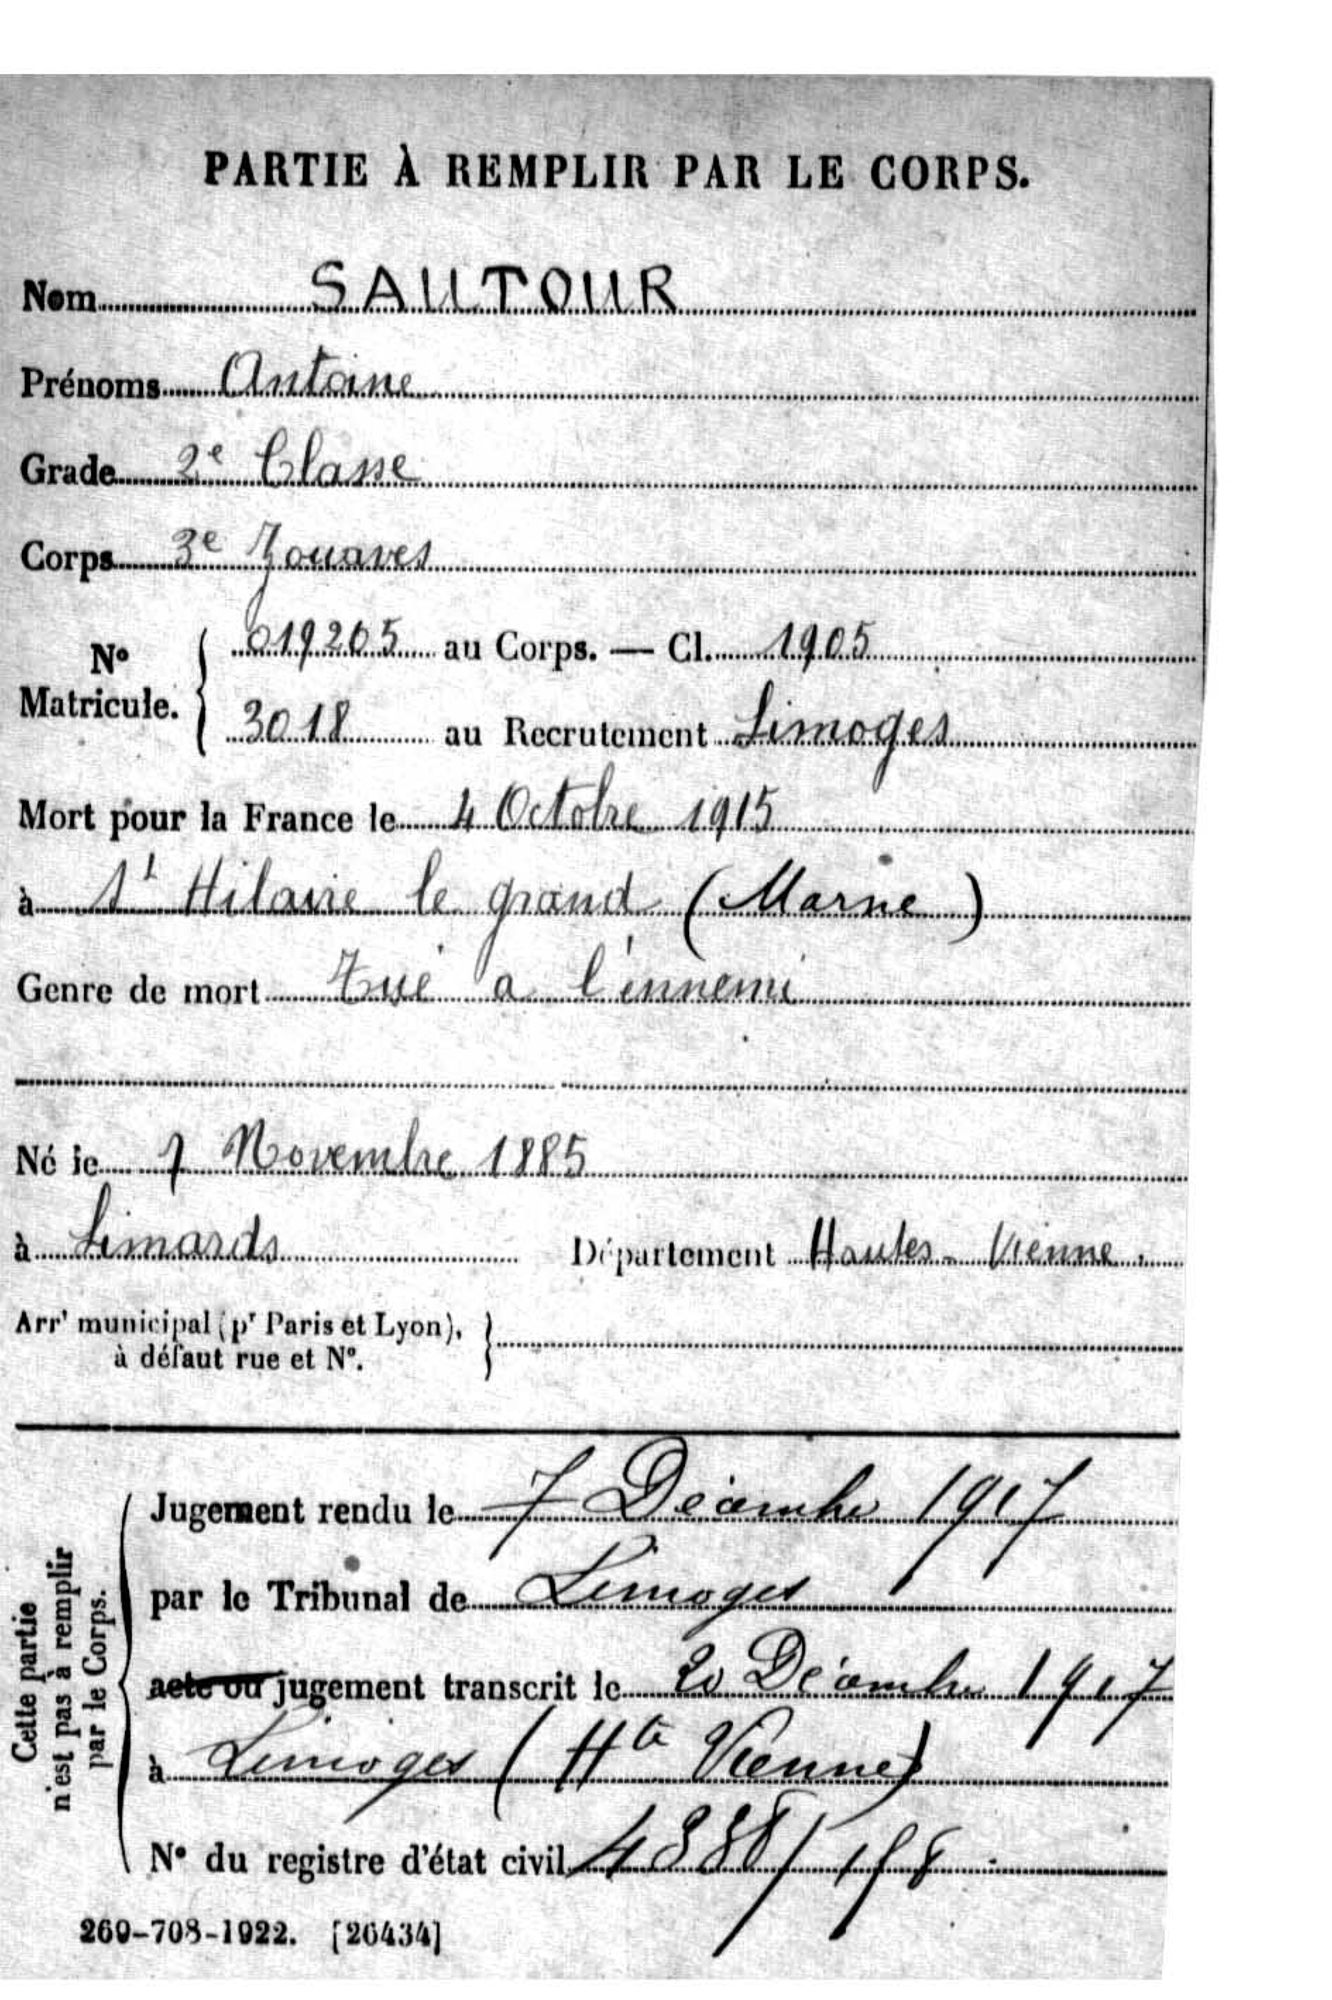 PARTIE À REMPLIR PAR LE CORPS.
Nom SAUTOUR
Prénoms Antoine
Grade 2e Classe
Corps 3e Zouaves
No Matricule. { 019205 au Corps. — Cl. 1905
3018 au Recrutement Limoges
Mort pour la France le 4 Octobre 1915
à St Hilaire le grand (Marne)
Genre de mort Tué a l'ennemi
Né le 7 Novembre 1885
à Limards Département Hautes-Vienne.
Arrt municipal (pr Paris et Lyon), à défaut rue et No. }
Cette partie n'est pas à remplir par le Corps.
Jugement rendu le 7 Décembre 1917
par le Tribunal de Limoges
acte ou jugement transcrit le 20 Décembre 1917
à Limoges (Hte Vienne)
No du registre d'état civil
269-708-1922. [26434]